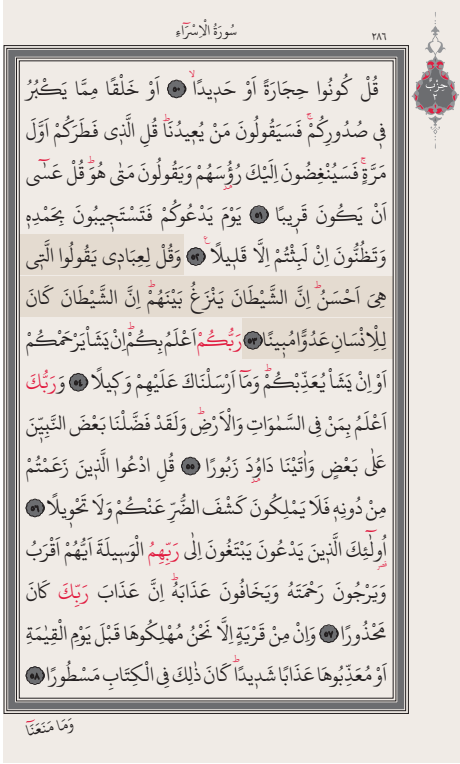 سُورَةُ الْاِسْرَٓاءِ
٢٨٦
حِزْبْ
قُلْ كُونُوا حِجَارَةً اَوْ حَدٖيدًاۙ ﴿٥٠﴾ اَوْ خَلْقًا مِمَّا يَكْبُرُ
فٖى صُدُورِكُمْۚ فَسَيَقُولُونَ مَنْ يُعٖيدُنَاۜ قُلِ الَّذٖى فَطَرَكُمْ اَوَّلَ
مَرَّةٍۚ فَسَيُنْغِضُونَ اِلَيْكَ رُؤُسَهُمْ وَيَقُولُونَ مَتٰى هُوَۜ قُلْ عَسٰٓى
اَنْ يَكُونَ قَرٖيبًا ﴿٥١﴾ يَوْمَ يَدْعُوكُمْ فَتَسْتَجٖيبُونَ بِحَمْدِهٖ
وَتَظُنُّونَ اِنْ لَبِثْتُمْ اِلَّا قَلٖيلًا۟ ﴿٥٢﴾ وَقُلْ لِعِبَادٖى يَقُولُوا الَّتٖى
هِىَ اَحْسَنُۜ اِنَّ الشَّيْطَانَ يَنْزَغُ بَيْنَهُمْۜ اِنَّ الشَّيْطَانَ كَانَ
لِلْاِنْسَانِ عَدُوًّا مُبٖينًا ﴿٥٣﴾ رَبُّكُمْ اَعْلَمُ بِكُمْۜ اِنْ يَشَأْ يَرْحَمْكُمْ
اَوْ اِنْ يَشَأْ يُعَذِّبْكُمْۜ وَمَٓا اَرْسَلْنَاكَ عَلَيْهِمْ وَكٖيلًا ﴿٥٤﴾ وَرَبُّكَ
اَعْلَمُ بِمَنْ فِى السَّمٰوَاتِ وَالْاَرْضِۜ وَلَقَدْ فَضَّلْنَا بَعْضَ النَّبِيّٖنَ
عَلٰى بَعْضٍ وَاٰتَيْنَا دَاوُ۫دَ زَبُورًا ﴿٥٥﴾ قُلِ ادْعُوا الَّذٖينَ زَعَمْتُمْ
مِنْ دُونِهٖ فَلَا يَمْلِكُونَ كَشْفَ الضُّرِّ عَنْكُمْ وَلَا تَحْوٖيلًا ﴿٥٦﴾
اُو۬لٰٓئِكَ الَّذٖينَ يَدْعُونَ يَبْتَغُونَ اِلٰى رَبِّهِمُ الْوَسٖيلَةَ اَيُّهُمْ اَقْرَبُ
وَيَرْجُونَ رَحْمَتَهُ وَيَخَافُونَ عَذَابَهُۜ اِنَّ عَذَابَ رَبِّكَ كَانَ
مَحْذُورًا ﴿٥٧﴾ وَاِنْ مِنْ قَرْيَةٍ اِلَّا نَحْنُ مُهْلِكُوهَا قَبْلَ يَوْمِ الْقِيٰمَةِ
اَوْ مُعَذِّبُوهَا عَذَابًا شَدٖيدًاۜ كَانَ ذٰلِكَ فِى الْكِتَابِ مَسْطُورًا ﴿٥٨﴾
وَمَا مَنَعَنَٓا